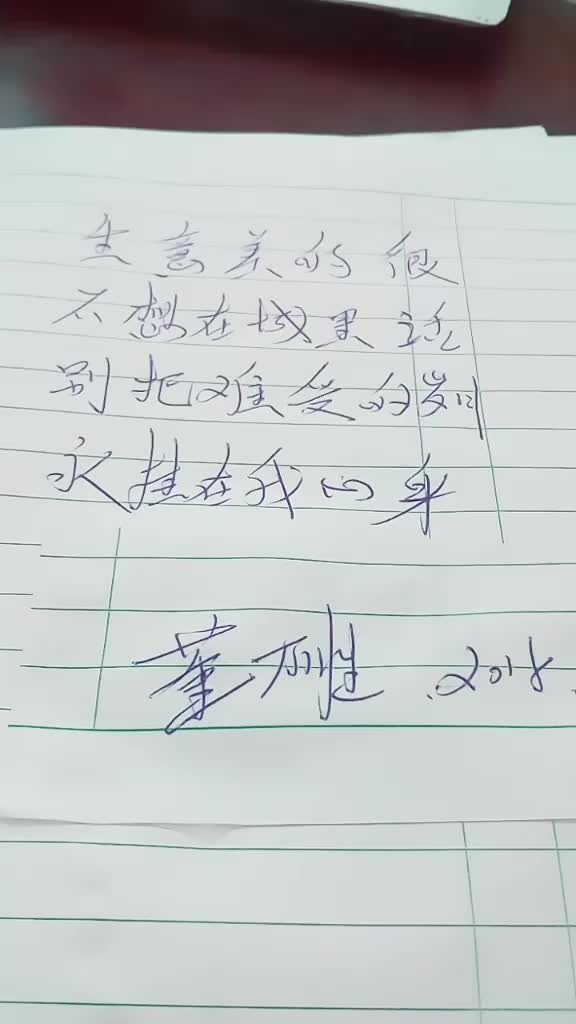 生意美的很
不想在城里过
别把难受的岁
永挂在我心
董 2018